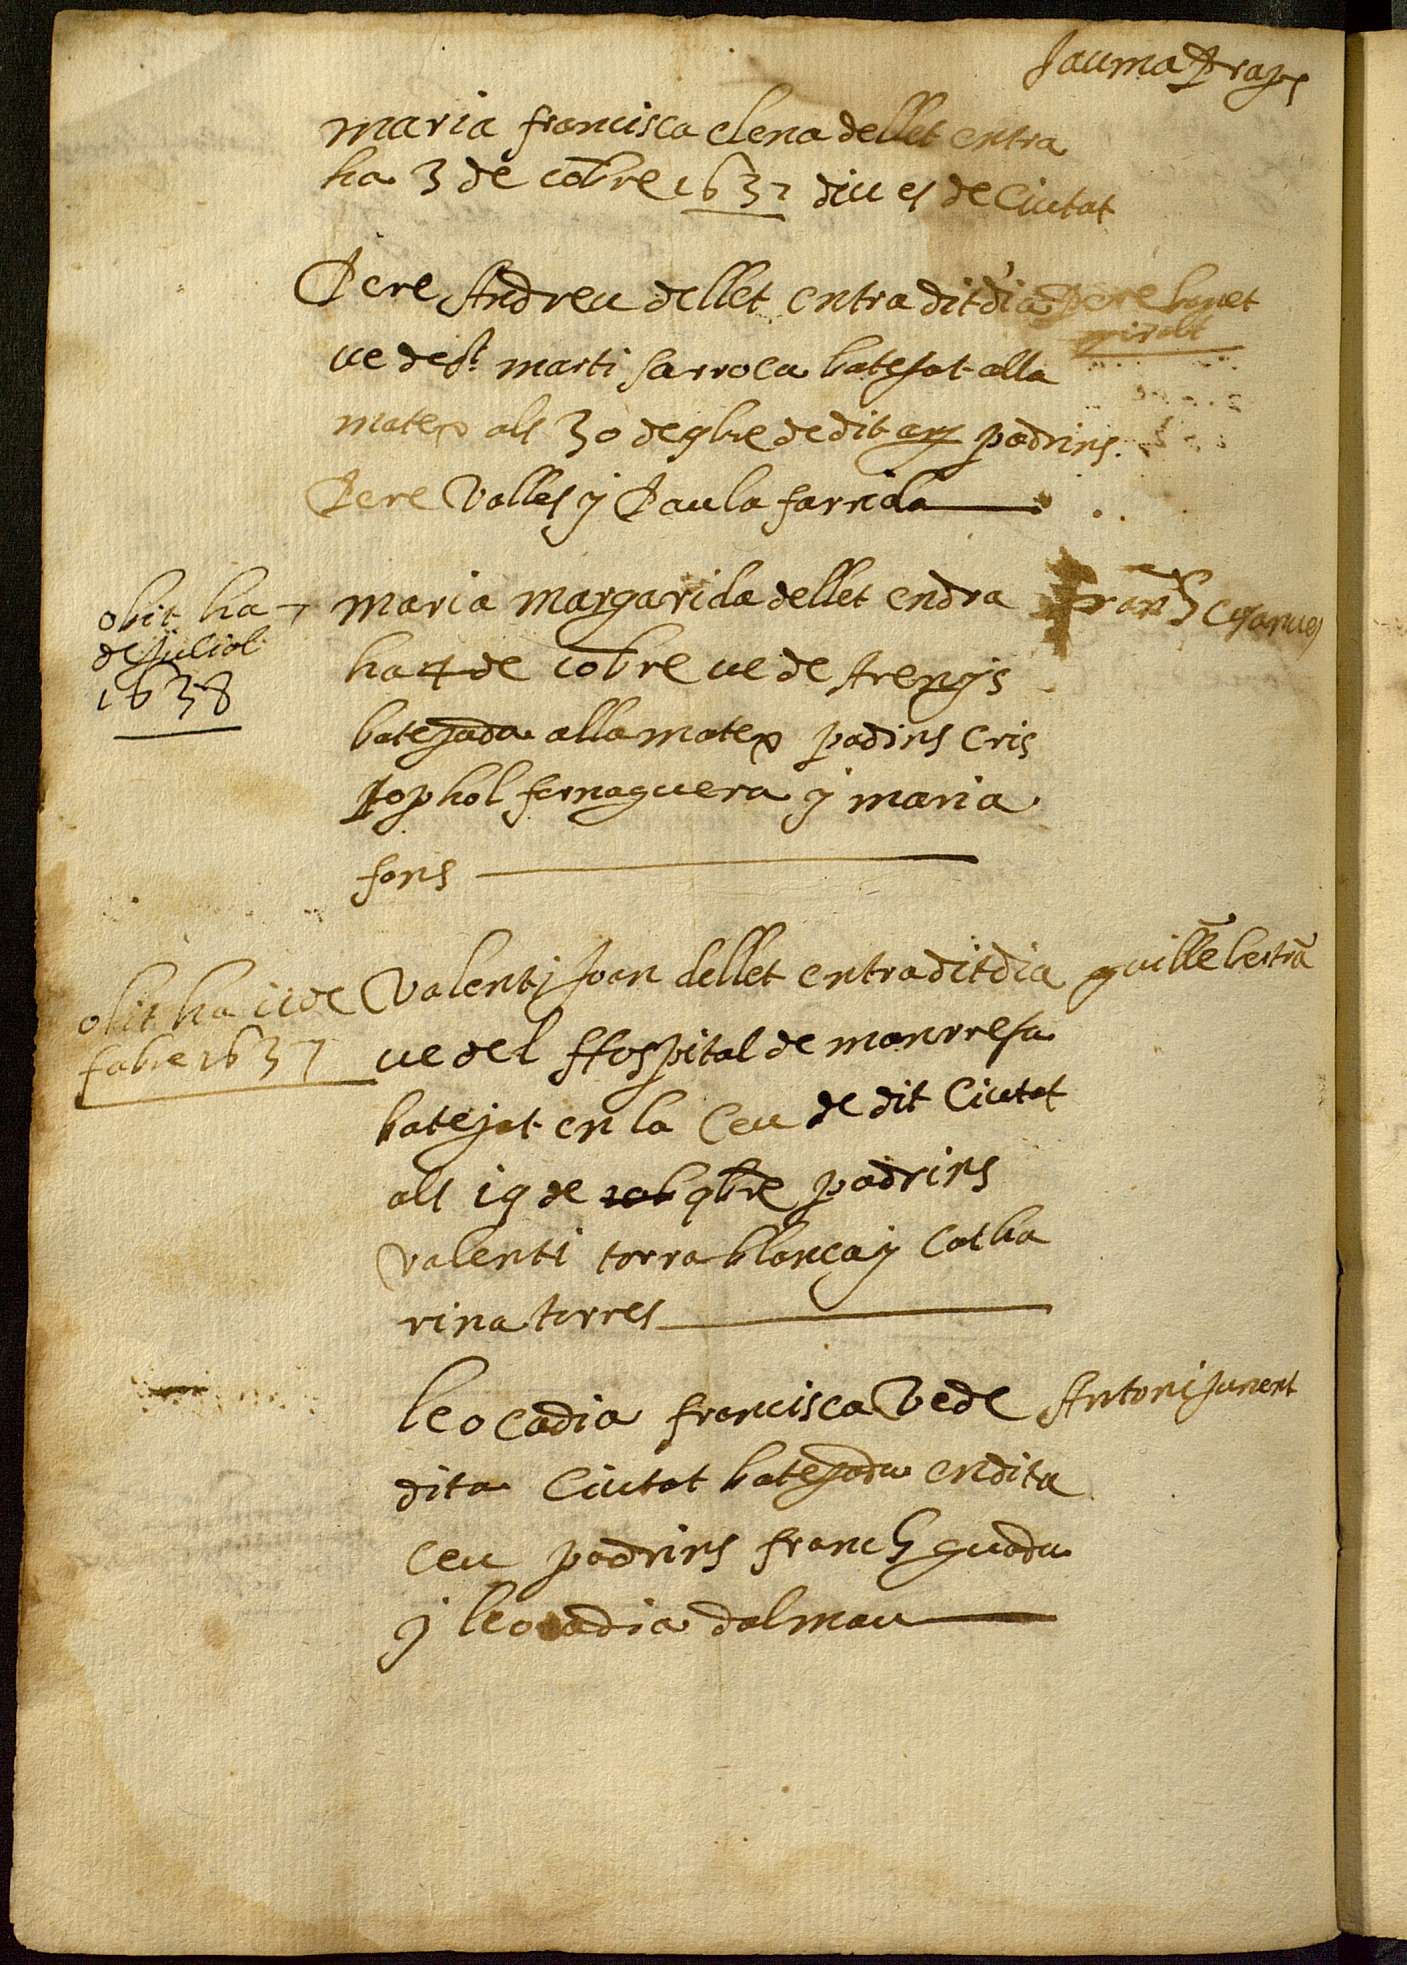 Jauma Prats
maria francisca elena dellet entra
ha 3 de 10bre 1637 diu es de Ciutat
Pere Andreu dellet entra dit dia Pere benet
giralt
ve de St. marti sarroca batejat alla
matex als 30 de 9bre de dit any padrins
Pere Valles y Paula farrida
obit ha 7
de Juliol
1638
maria margarida dellet endra
ha 4 de 10bre ve de Arenys
batejada alla matex padrins Cris
tophol fernaguera y maria
fons
Valenti Joan dellet entra dit dia guille bertra
obit ha 11 de
fabre 1637
ve del Hospital de manrresa
batejat en la Ceu de dit Ciutat
als 19 de 9bre padrins
Valenti torra blanca y Catha
rina torres
leocadia francisca Ve de Antoni Junent
dita Ciutat batejada en dita
Ceu padrins franch guada
y leocadia dalmau